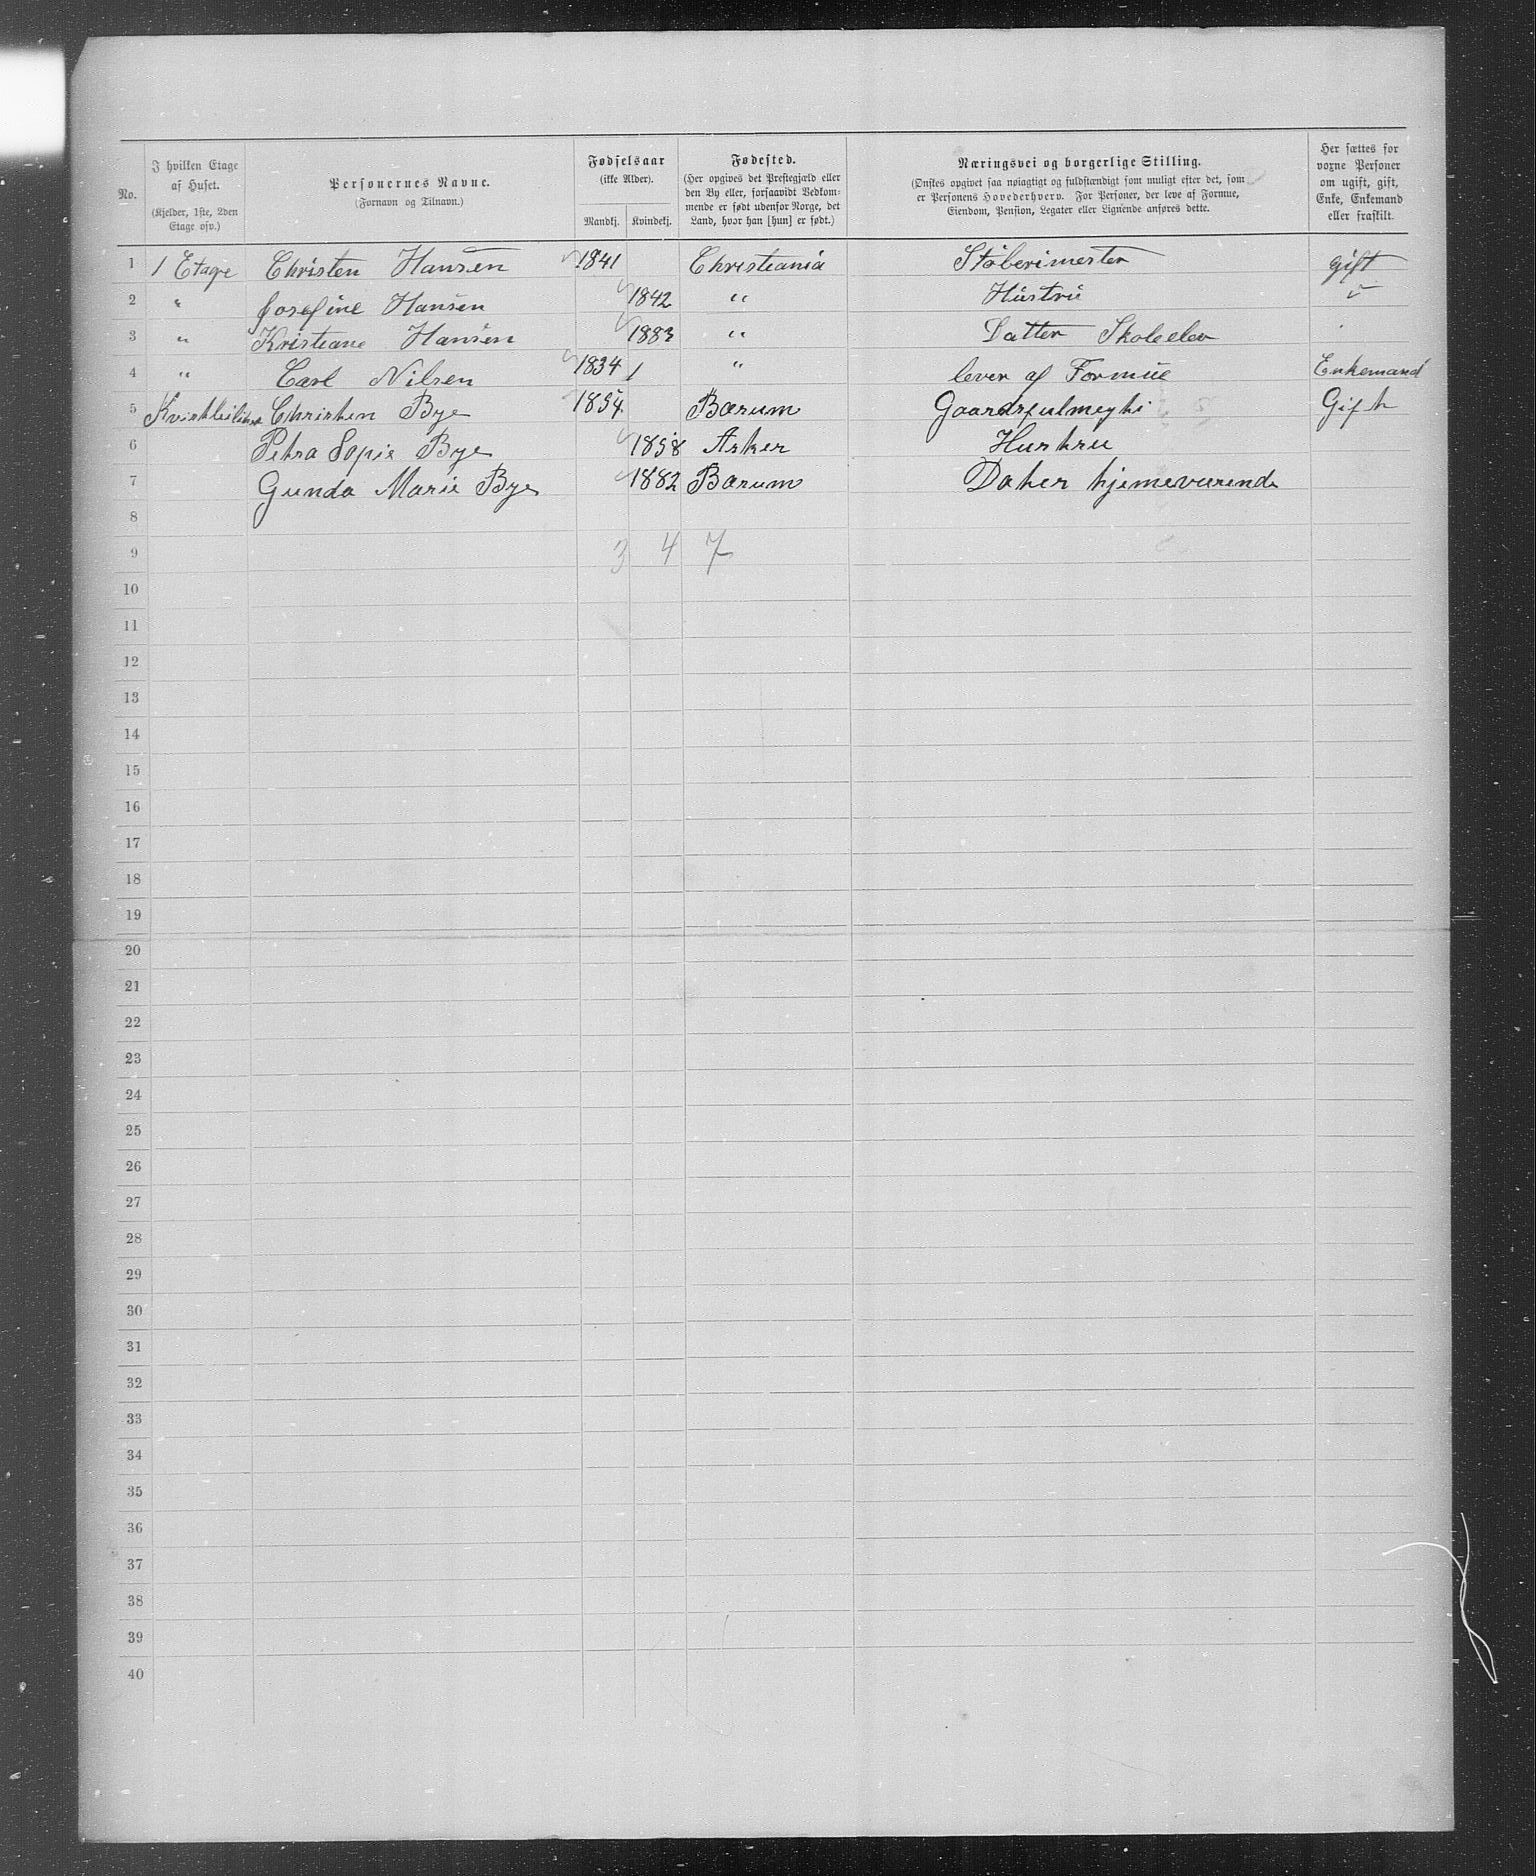 No.
I hvilken Etage af Huset.
(Kjelder, 1ste, 2den Etage osv.)
Personernes Navne.
(Fornavn og Tilnavn.)
Fødselsaar
(ikke Alder).
Mandkj. Kvindekj.
Fødested.
(Her opgives det Prestegjæld eller den By eller, forsaavidt Vedkommende er født udenfor Norge, det Land, hvor han [hun] er født.)
Næringsvei og borgerlige Stilling.
(Ønskes opgivet saa nøiagtigt og fuldstændigt som muligt efter det, som er Personens Hovederhverv. For Personer, der leve af Formue, Eiendom, Pension, Legater eller Lignende anføres dette.
Her sættes for voxne Personer om ugift, gift, Enke, Enkemand eller fraskilt.
1 1 Etage Christen Hansen 1841 Christiania Støberimester gift
2 " Josefine Hansen 1842 " Hustru "
3 " Kristiane Hansen 1883 " Datter Skoleelev
4 " Carl Nilsen 1834 " lever af Formue Enkemand
5 Christen Bye 1854 Bærum Gaardsfulmegti Gift
6 Petra Sopie Bye 1858 Asker Hustru
7 Gunda Marie Bye 1882 Bærum Dater hjemeværende
8
9 3 4 7
10
11
12
13
14
15
16
17
18
19
20
21
22
23
24
25
26
27
28
29
30
31
32
33
34
35
36
37
38
39
40